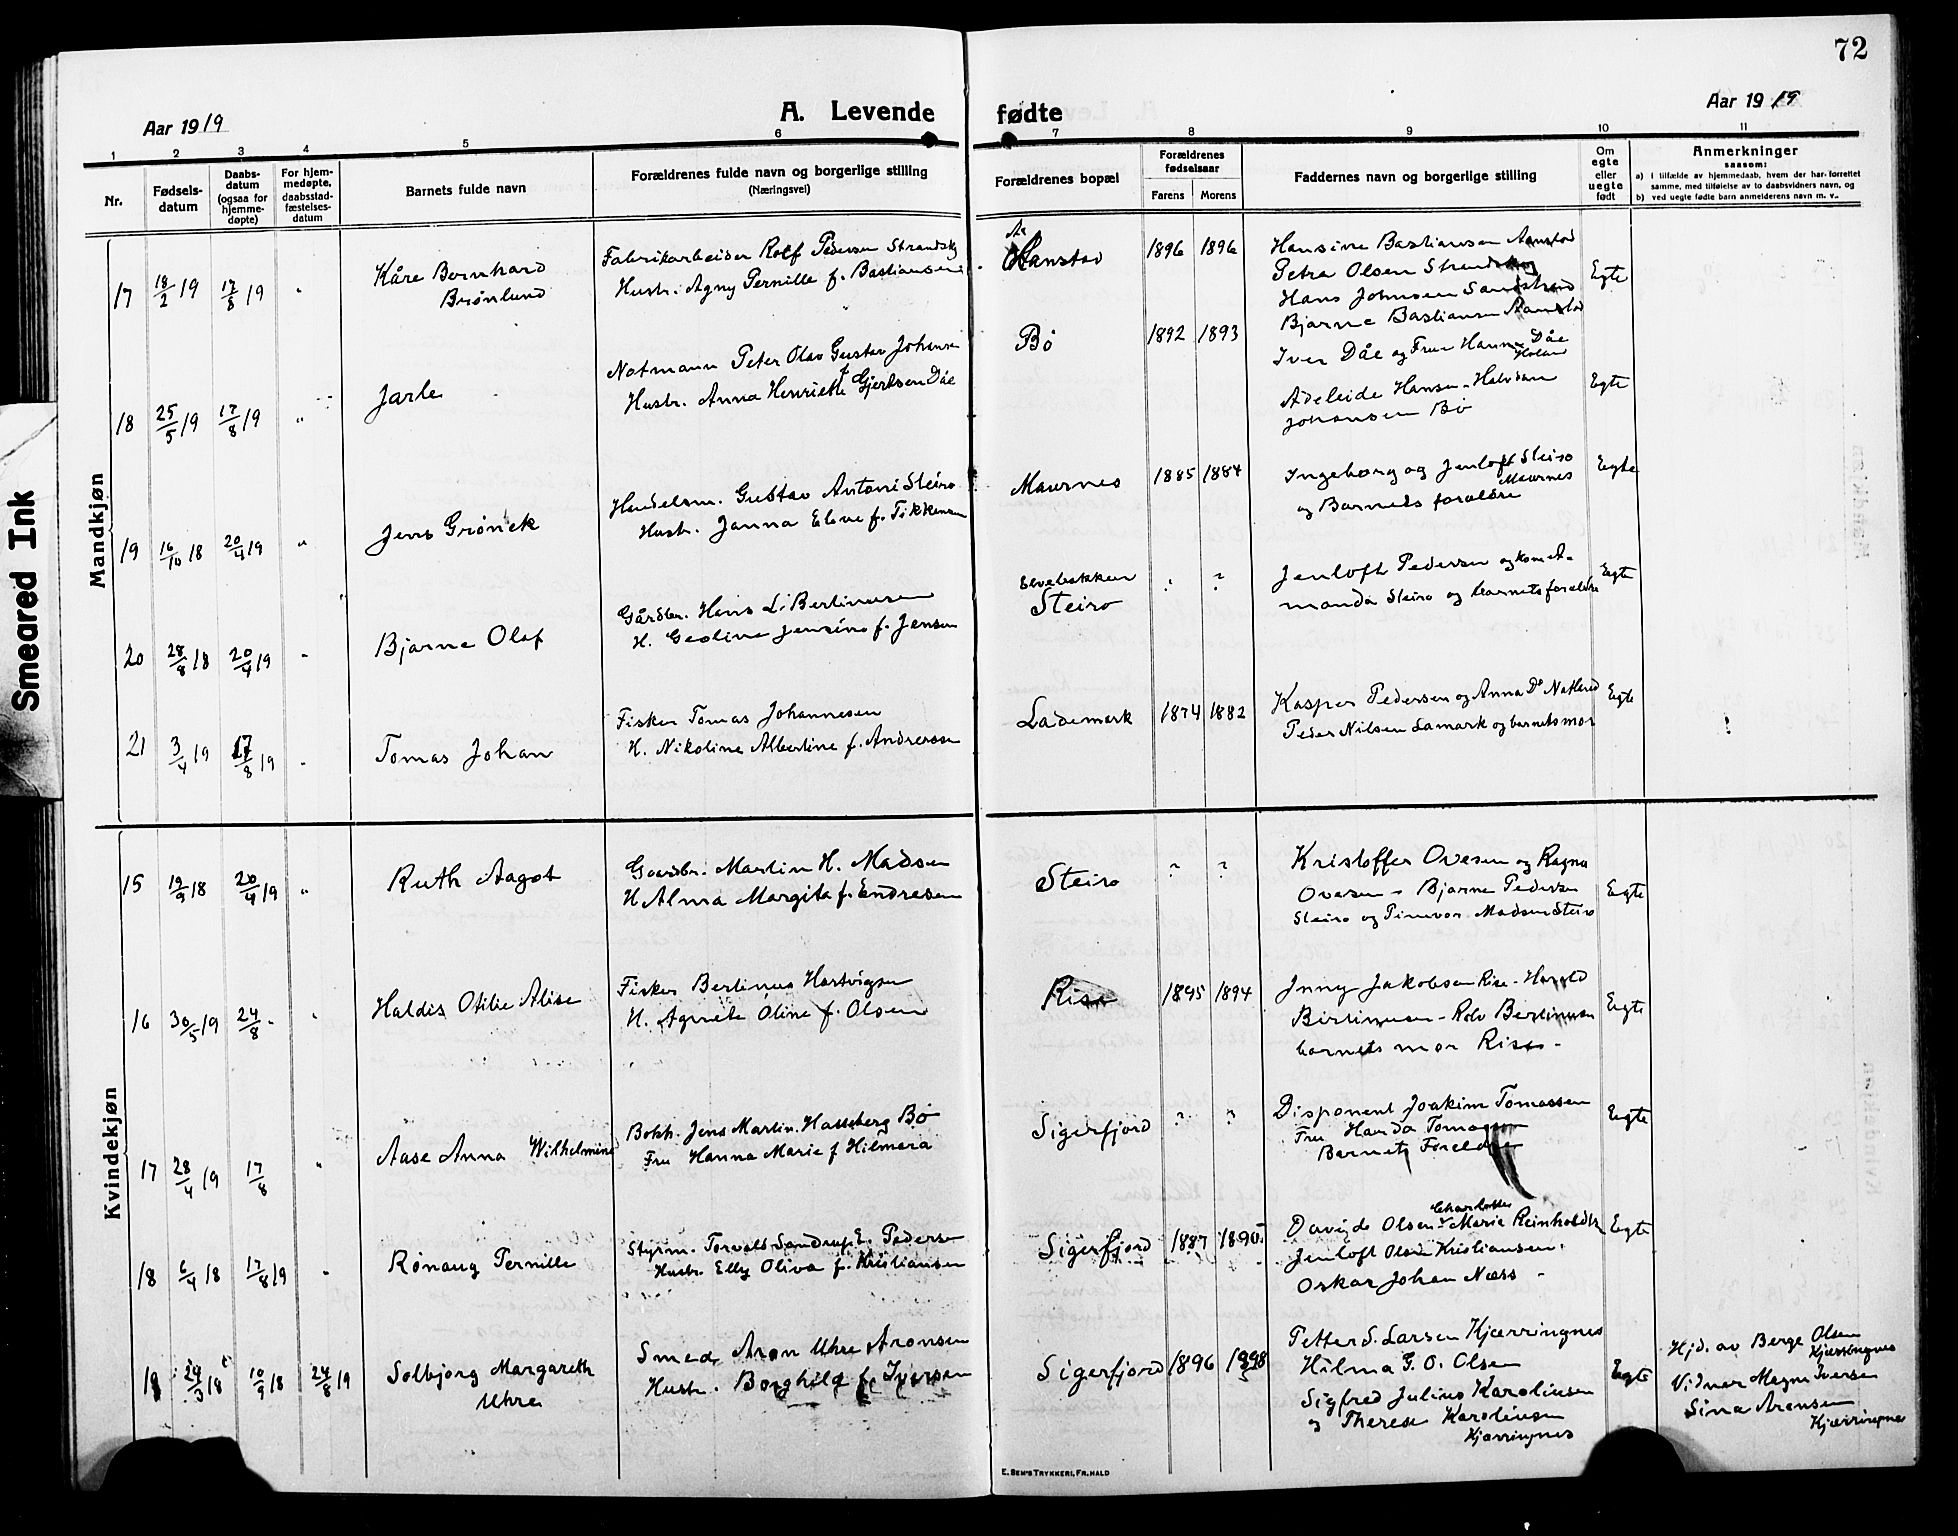 72
Aar 1919
A. Levende
fødte
Aar 1919
1 2 3 4 5 6 7 8 9 10 11
Nr.
Fødsels-
datum
Daabs-
datum
(ogsaa for
hjemme-
døpte)
For hjem-
medøpte,
daabsstad-
fæstelses-
datum
Barnets fulde navn
Forældrenes fulde navn og borgerlige stilling
(Næringsvei)
Forældrenes bopæl
Forældrenes
fødselsaar
Farens Morens
Faddernes navn og borgerlige stilling
Om
egte
eller
uegte
født
Anmerkninger
saasom:
a) I tilfælde av hjemmedaab, hvem der har forrettet
samme, med tilføielse av to daabsvidners navn, og
b) ved uegte fødte barn anmelderens navn m. v.
Smeared Ink
Mandkjøn
17 18/2 19 17/8 19 "
Kåre Bernhard
Brønlund
Fabrikarbeider Rolf Pedersen Strandskog
Hustr. Agny Pernille f. Bastiansen
Aanstad
1896 1896
Hansine Bastiansen Aanstad
Petra Olsen Strandskog
Hans Johnsen Sandstrand
Bjarne Bastiansen Aanstad
Egte
18 25/5 19 17/8 19 "
Jarle
Notmann Peter Olav Gustav Johansen
Hustr. Anna Henriette f. Gjertsen Dåe
Bø
1892 1893
Iver Dåe og Fru Hanna Dåe
Adeleide Hansen - Halvdan
Johansen Bø
Egte
19 16/10 18 20/4 19 "
Jens Grønek
Handelsm. Gustav Antoni Steiro
Hustr. Janna Elene f. Tikkensen
Maurnes
1885 1884
Ingeborg og Jenloft Steiro
Maurnes
og Barnets foreldre
Egte
20 28/8 18 20/4 19 "
Bjarne Olaf
Gårdbr. Hans L. Bertinusen
H. Geoline Jensine f. Jensen
Elvebakken
Steiro
? ?
Jenloft Pedersen og kone A-
manda Steiro og barnets foreldre
Egte
21 3/4 19 17/8 19 "
Tomas Johan
Fisker Tomas Johannesen
H. Nikoline Albertine f. Andersen
Lademark
1874 1882
Kasper Pedersen og Anna Do Natland
Peder Nilsen Lamark og barnets mor
Egte
Kvindekjøn
15 19/9 18 20/4 19 "
Ruth Aagot
Gaardbr. Martin H. Madsen
H. Alma Margita f. Endresen
Steiro
? ?
Kristoffer Ovesen og Ragna
Ovesen - Bjarne Pedersen
Steiro og Madsen Steiro
Egte
16 30/5 19 24/8 - "
Haldis Otilie Alise
Fisker Bertinus Hartvigsen
H. Agnete Oline f. Olsen
Rise
1895 1894
Jnny Jakobsen Rise - Harald
Bertinusen - Rolv Bertinusen
barnets mor Rise -
Egte
17 28/4 19 17/8 "
Aase Anna Wilhelmine
Bokh. Jens Martin Hassberg Bø
Fru Hanna Marie f Hilmara
Sigerfjord
? ?
Disponent Joakim Tomassen
Fru Handa Tomassen
Barnets Foreldre
Egte
18 6/4 18 17/8 19 "
Rønaug Pernille
Styrm. Torvald Sandrup E. Pedersen
Hustr. Elly Oliva f. Kristiansen
Sigerfjord
1887 1890
Charlotte
Davide Olsen - Marie Reinholdts
Jenloft Olsen Kristiansen.
Oskar Johan Næss -
Egte
18 24/3 18 10/9 18 24/8 19
Solbjørg Margareth
Uhre
Smed Aron Uhre Aronsen
Hustr. Borghild f. Iversen
Sigerfjord
1896 1898
Petter S. Larsen Kjærringnes
Hilma G. O. Olsen
Sigfred Julius Karolinsen
og Therese Karolinsen
Kjærringnes
Egte
Hjd. av Berge Olsen
Kjærringnes
Vidner Magna Iversen
Sina Aronsen
Kjærringnes
E. Sem's Trykkeri, Fr.hald